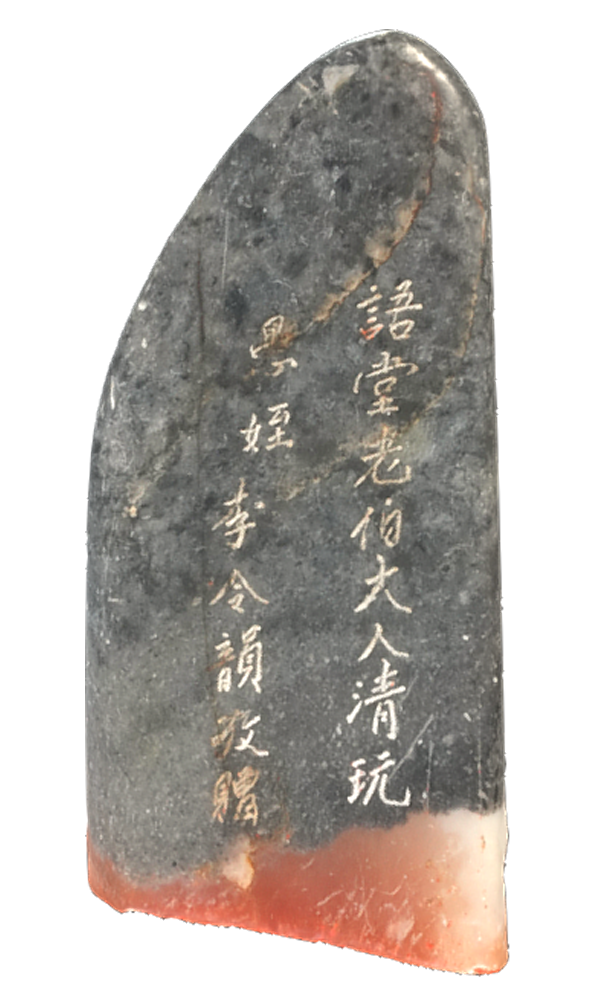 語堂老伯大人清玩
愚姪李令韻敬贈